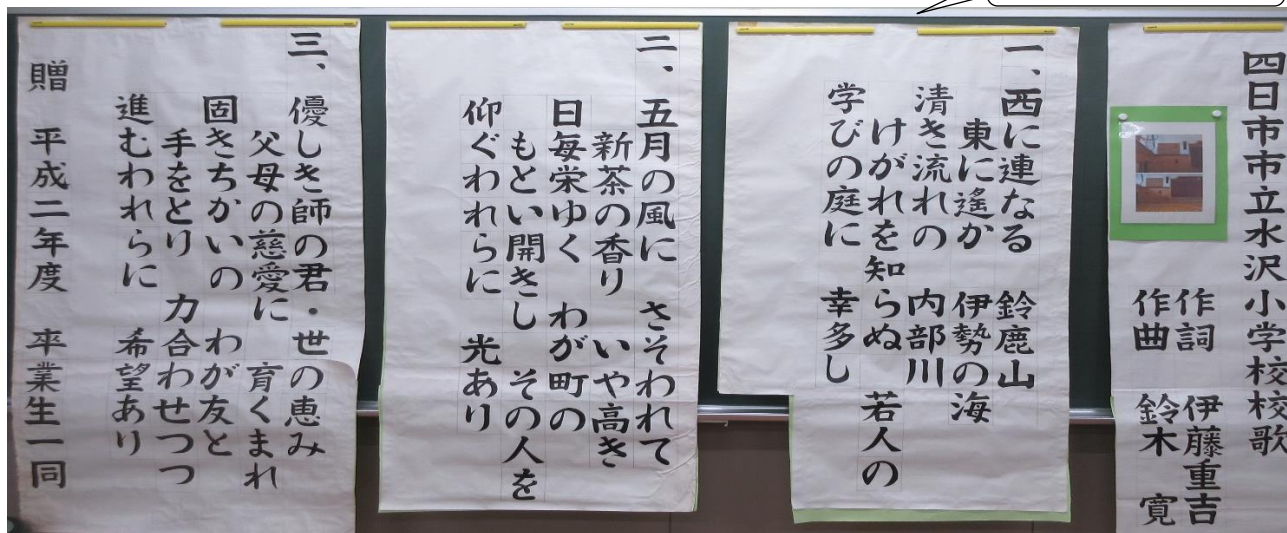 四日市市立水沢小学校校歌
作詞 伊藤重吉
作曲 鈴木 寛
一、西に連なる 鈴鹿山
東に遙か 伊勢の海
清き流れの 内部川
けがれを知らぬ 若人の
学びの庭に 幸多し
二、五月の風に さそわれて
新茶の香り いや高き
日毎栄ゆく わが町の
もとい開きし その人を
仰ぐわれらに 光あり
三、優しき師の君・世の恵み
父母の慈愛に 育くまれ
固きちかいの わが友と
手をとり 力合わせつつ
進むわれらに 希望あり
贈 平成二年度 卒業生一同